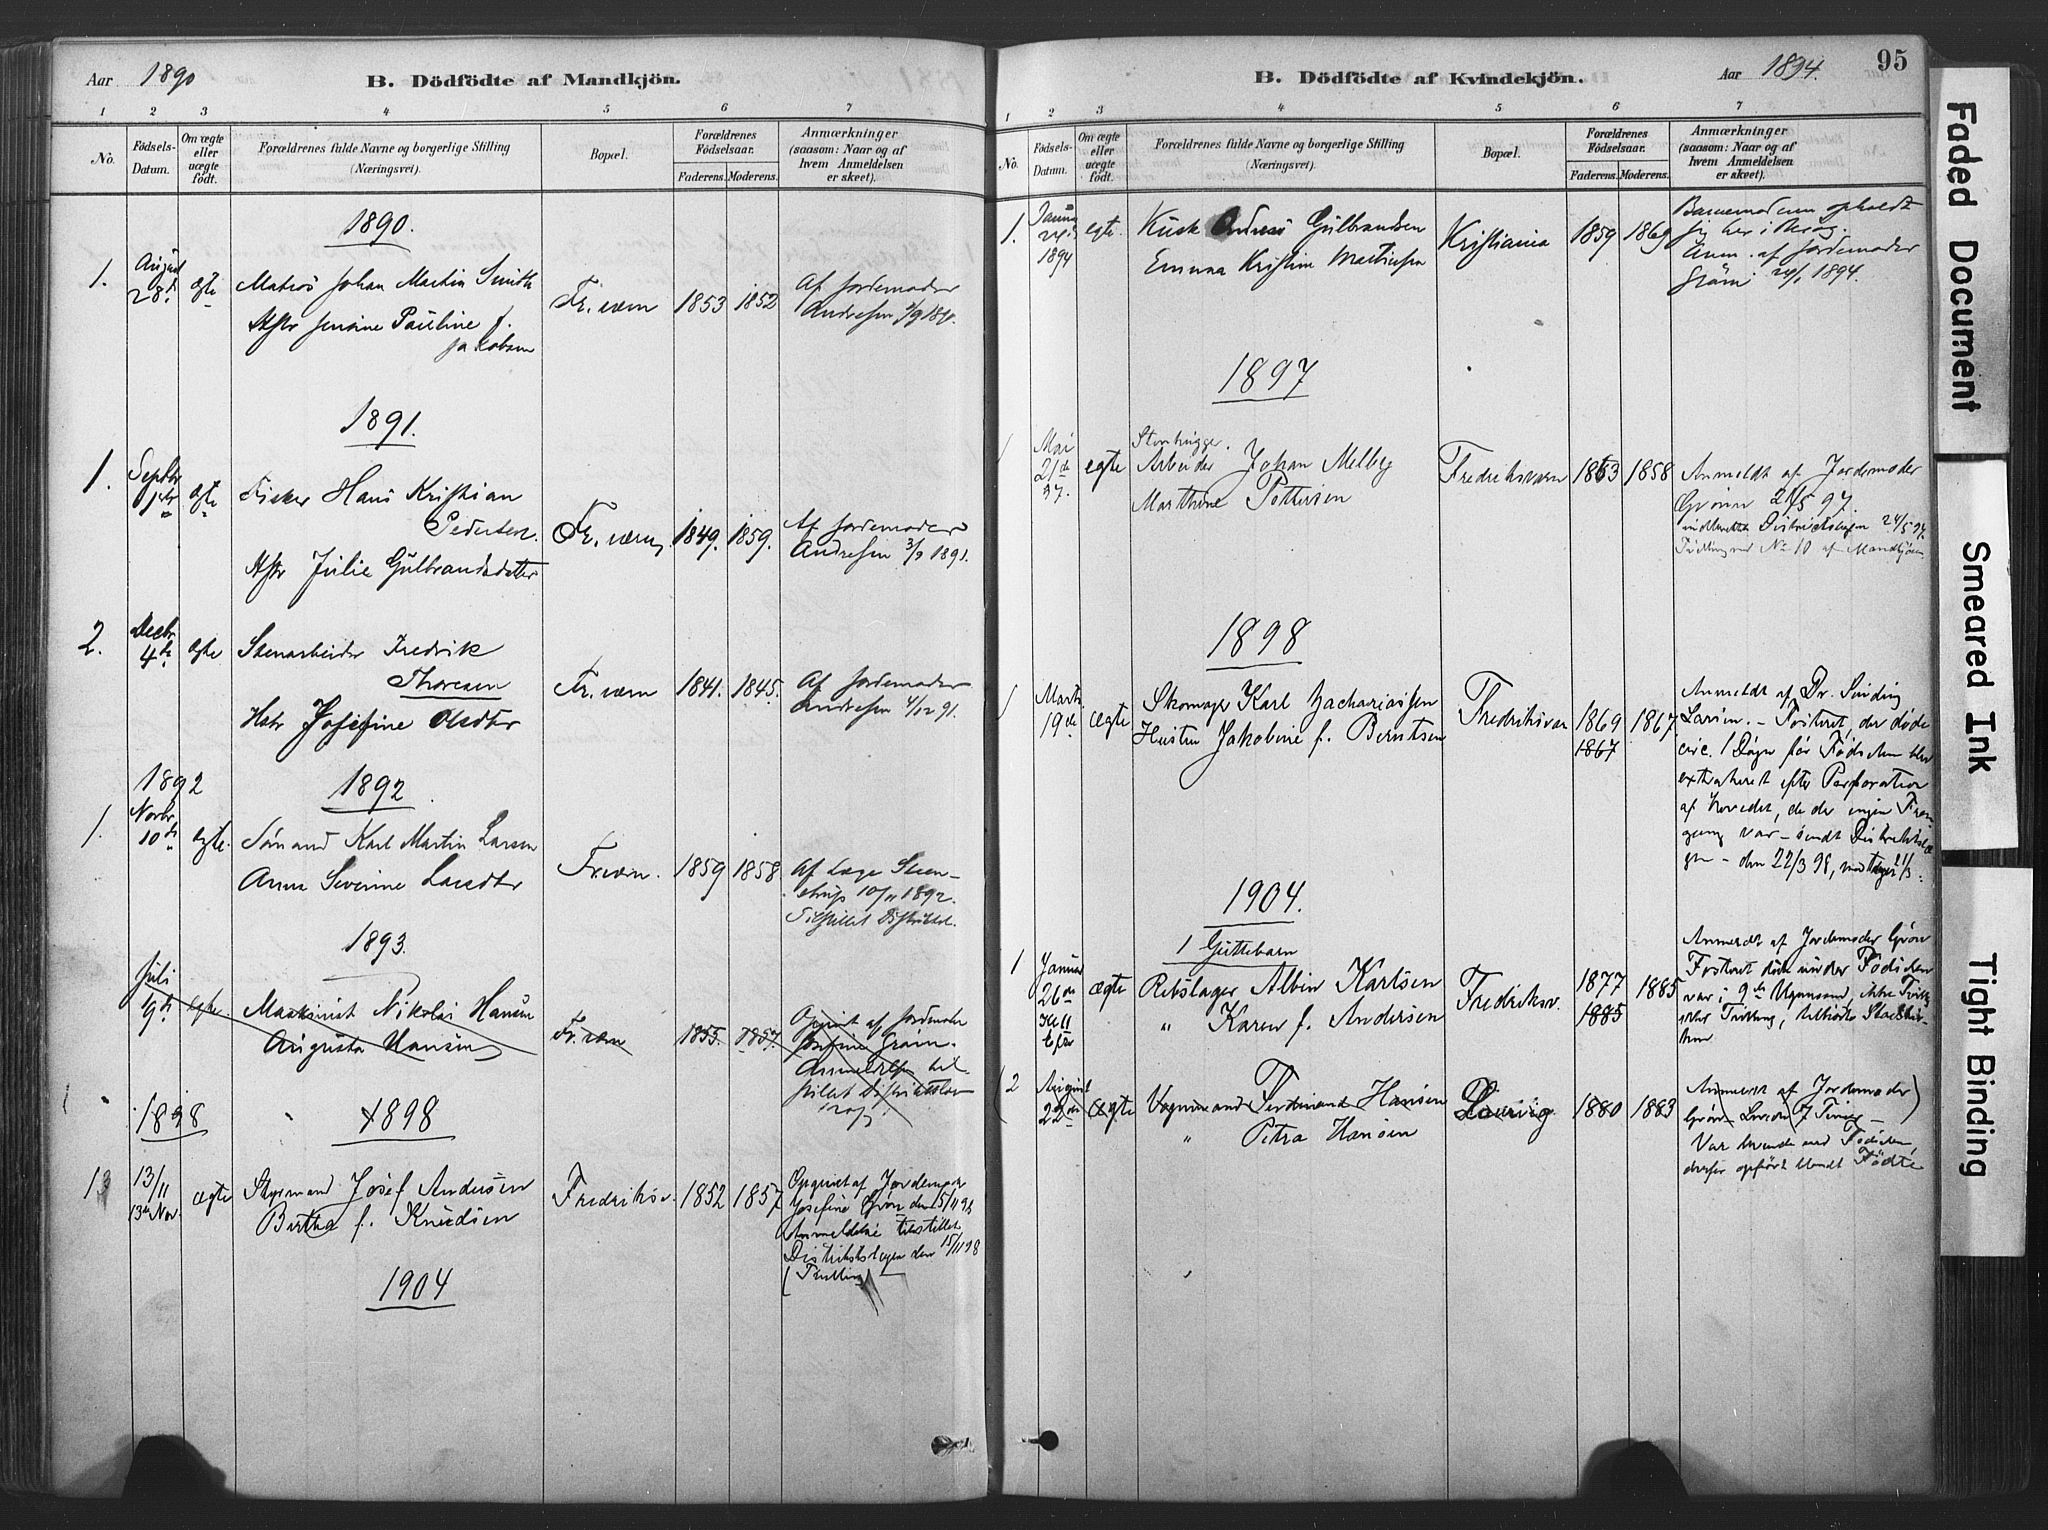 Aar 1890
B. Dödfödte af Mandkjön.
1 2 3 4 5 6 7
No.
Födsels-
Datum.
Om ægte
eller
uægte
födt.
Forældrenes fulde Navne og borgerlige Stilling
(Næringsvei).
Bopæl.
Forældrenes
Födselsaar.
Faderens. Moderens.
Anmærkninger
(saasom: Naar og af
hvem Anmeldelsen
er skeet).
1890.
1.
August
28de
egte
Matros Johan Martin Smith
Hstr Jensine Pauline f.
Jakobsen
Fr.værn
1853 1852
Af Jordemoder
Andresen
1891.
1.
Septbr
1ste
egte
Fisker Hans Kristian
Pedersen.
Hstr Julie Gulbrandsdatter
Fr.værn
1849. 1859.
Af Jordemoder
Andresen 3/9 1891.
2.
Decbr.
4de
egte
Stenarbeider Fredrik
Thoresen
Hstr Josefine Olsdtr
Fr.værn
1841. 1845.
Af Jordemoder
Andresen 4/12 91.
1892
1892.
1.
Novbr
10de
egte.
Sømand Karl Martin Larsen
Anna Severine Larsdtr
Fr.værn.
1859 1858
Af Læge Steen-
strup 10/11 1892.
Tilstillet Distriktsl.
1893.
Juli
19de
egte.
Maskinist Nikolai Hansen
Augusta Hansen
Fr.værn
1855. 1857.
Opgivet af Jordemoder
Josefine Grøn.
Anmeldelsen til-
stillet Distriktslæg
1898
1898
13
13/11
13de Nov.
ægte
Styrmand Josef Andersen
Bertha f. Knudsen
Fredriksv.
1852 1857
Opgivet af Jordemoder
Josefine Grøn den 15/11 98
Anmeldelse tilstillet
Distriktslægen den 15/11 98
(Tvilling)
1904
95
B. Dödfödte af Kvindekjön.
Aar 1894.
1 2 3 4 5 6 7
No.
Födsels-
Datum.
Om ægte
eller
uægte
födt.
Forældrenes fulde Navne og borgerlige Stilling
(Næringsvei).
Bopæl.
Forældrenes
Födselsaar.
Faderens. Moderens.
Anmærkninger
(saasom: Naar og af
hvem Anmeldelsen
er skeet).
1.
Januar
24de
1894
egte.
Kusk Andreas Gulbrandsen
Emma Kristine Martinsen
Kristiania
1859 1869
Barnemoderen opholdt
sig her i
Anm. af Jordemoder
Grøn 24/1 1894.
1897
1
Mai
21de
97.
egte
Stenhugger.
Arbeider Johan Melby
Marthine Pettersen
Fredriksværn
1863 1858
Anmeldt af Jordemoder
Grønn 21/5 97.
indberettet Distriktslægen 24/5 97.
Tvilling med No 10 af Mandkjøn
1898
1
Marts
19de
ægte
Skomager Karl Zachariassen
Hustru Jakobine f. Berntsen
Fredriksvær
1869
1867
1867
Anmeldt af Dr. Sinding
Larsen. – Fosteret, der døde
circ. 1 Døgn før Fødselen blev
extraheret efter Perforation
af hovedet, da der ingen Frem-
gang var – sendt Distriktslæ
gen – den 22/3 98, modtaget 21/3.
1904.
1 Guttebarn
1
Januar
26de
ægte
Rebslager Albin Karlsen
" Karen f. Andersen
Fredriksv.
1877
1885
1885
Anmeldt af Jordemoder Grøn
Fosteret døde under Fødselen
var i 9de Maaned, ikke Tvilling
eller Trilling,
2
August
22de
ægte
Vognmand Ferdinand Hansen
" Petra Hansen
Laurvig
1880 1883
Anmeldt af Jordemoder
Grøn
Var levende ved Fødselen,
derfor opført blandt Födte
Faded Document
Smeared Ink
Tight Binding